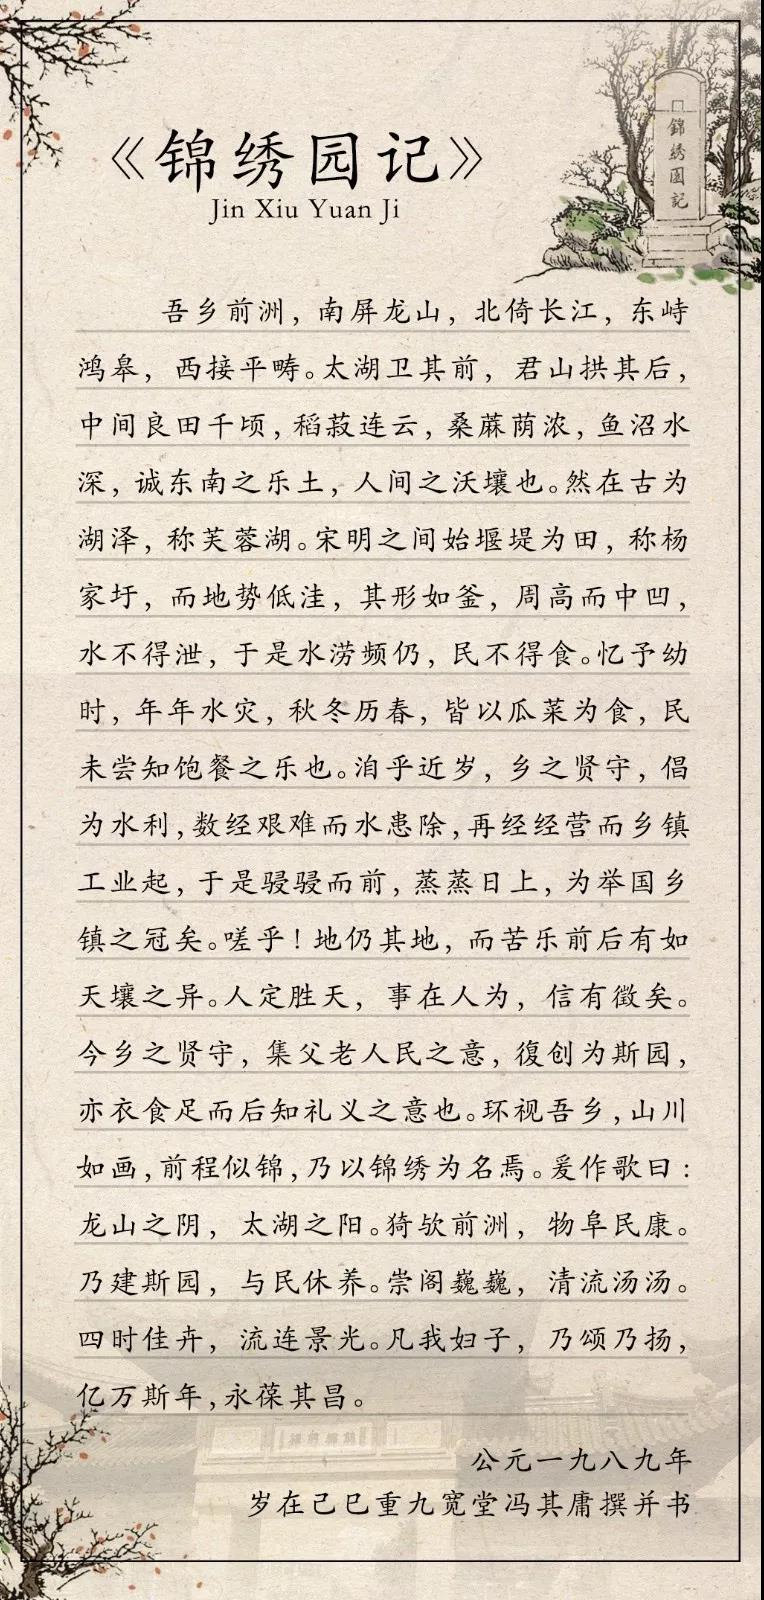 《锦绣园记》
Jin Xiu Yuan Ji
錦绣園記
吾乡前洲，南屏龙山，北倚长江，东峙
鸿皋，西接平畴。太湖卫其前，君山拱其后，
中间良田千顷，稻菽连云，桑蔴荫浓，鱼沼水
深，诚东南之乐土，人间之沃壤也。然在古为
湖泽，称芙蓉湖。宋明之间始堰堤为田，称杨
家圩，而地势低洼，其形如釜，周高而中凹，
水不得泄，于是水涝频仍，民不得食。忆予幼
时，年年水灾，秋冬历春，皆以瓜菜为食，民
未尝知饱餐之乐也。洎乎近岁，乡之贤守，倡
为水利，数经艰难而水患除，再经经营而乡镇
工业起，于是骎骎而前，蒸蒸日上，为举国乡
镇之冠矣。嗟乎！地仍其地，而苦乐前后有如
天壤之异。人定胜天，事在人为，信有徵矣。
今乡之贤守，集父老人民之意，復创为斯园，
亦衣食足而后知礼义之意也。环视吾乡，山川
如画，前程似锦，乃以锦绣为名焉。爰作歌曰：
龙山之阴，太湖之阳。猗欤前洲，物阜民康。
乃建斯园，与民休养。崇阁巍巍，清流汤汤。
四时佳卉，流连景光。凡我妇子，乃颂乃扬，
亿万斯年，永葆其昌。
公元一九八九年
岁在己巳重九宽堂冯其庸撰并书